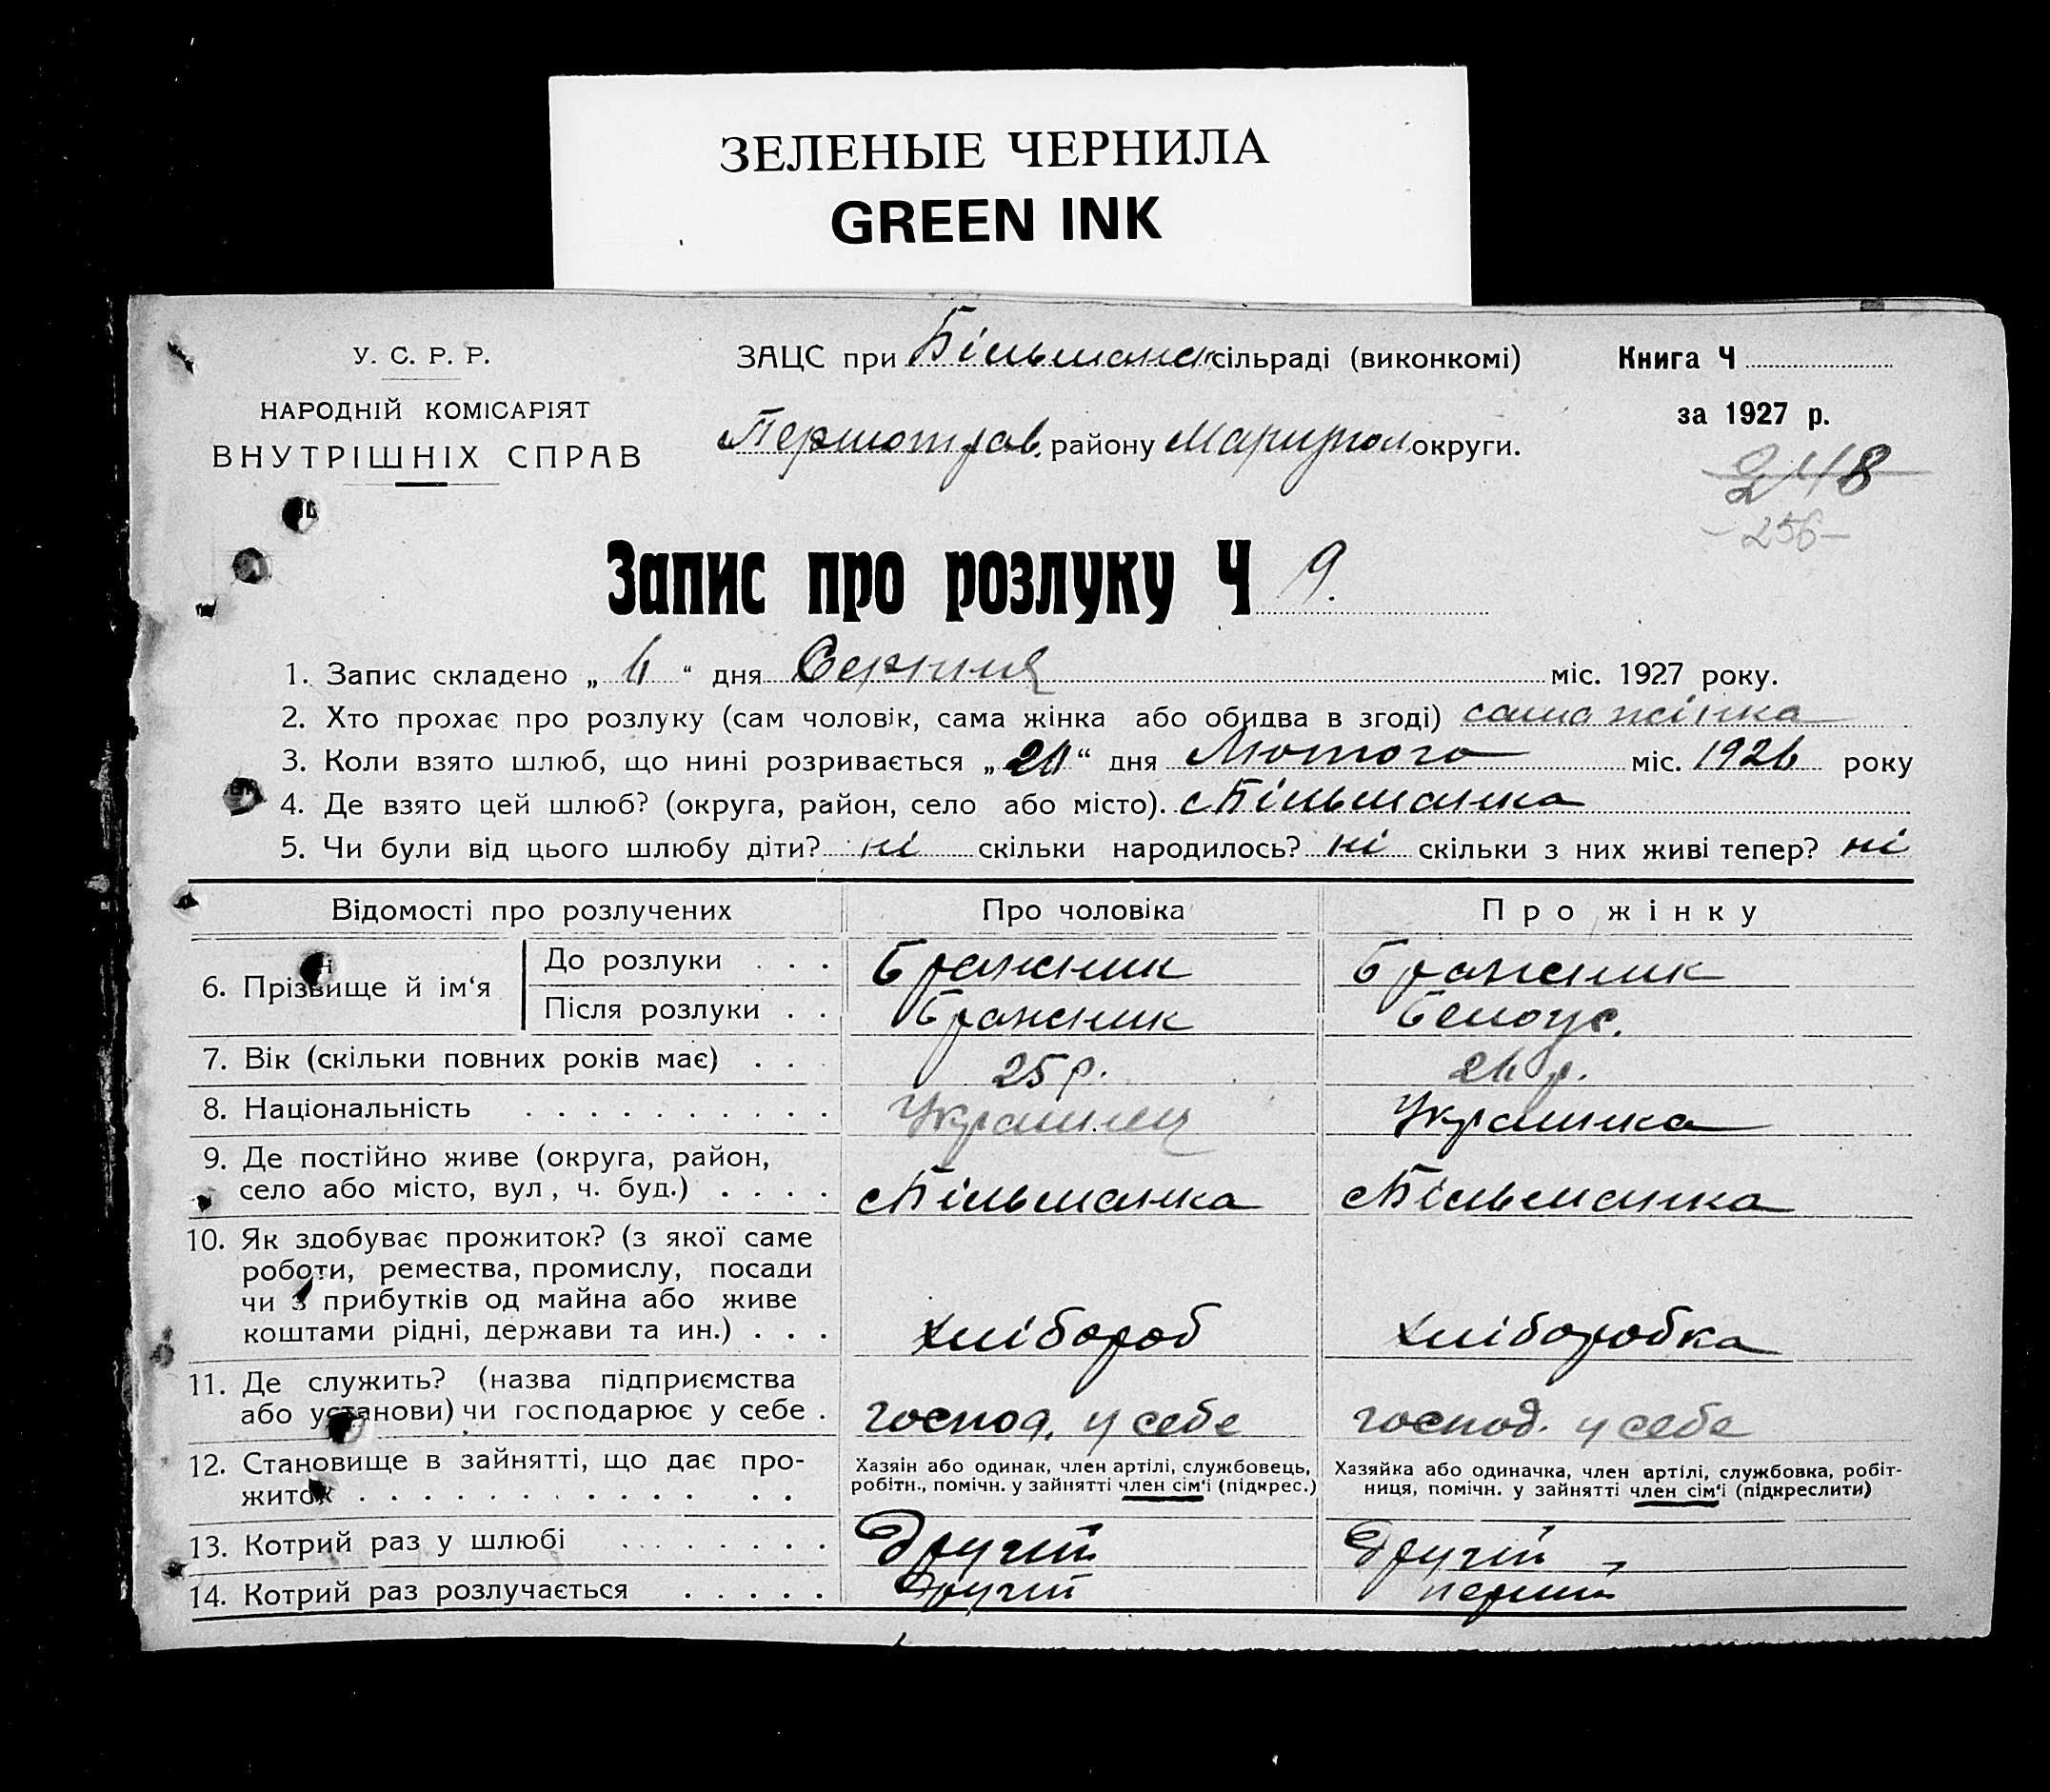 ЗЕЛЕНЫЕ ЧЕРНИЛА
GREEN INK
У. С. Р. Р.
НАРОДНІЙ КОМІСАРІЯТ
ВНУТРІШНІХ СПРАВ
ЗАЦС при Більманск сільраді (виконкомі)
Першотрав. району Маріупол округи.
Книга Ч
за 1927 р.
248
- 256 -
Запис про розлуку Ч 9.
1. Запис складено „ “ дня Серпня міс. 1927 року.
2. Хто прохає про розлуку (сам чоловік, сама жінка або обидва в згоді) сама жінка
3. Коли взято шлюб, що нині розривається „ “ дня Лютого міс. 1926 року
4. Де взято цей шлюб? (округа, район, село або місто). с Більманка
5. Чи були від цього шлюбу діти? ні скільки народилось? ні скільки з них живі тепер? ні
Відомості про розлучених Про чоловіка Про жінку
6. Прізвище й ім‘я
До розлуки . . . Бражник Бражник
Після розлуки . . Бражник Белоус.
7. Вік (скільки повних років має) . . . 25 р. р.
8. Національність . . . . . . . . . . Украинец Украинка
9. Де постійно живе (округа, район,
село або місто, вул, ч. буд.) . . . . с Більманка с Більманка
10. Як здобуває прожиток? (з якої саме
роботи, ремества, промислу, посади
чи з прибутків од майна або живе
коштами рідні, держави та ин.) . . . хлібороб хліборобка
11. Де служить? (назва підприємства
або установи) чи господарює у себе . господ. у себе господ. у себе
12. Становище в зайнятті, що дає про-
житок . . . . . . . . . . . . .
Хазяїн або одинак, член артілі, службовець,
робітн., помічн. у зайнятті член сім‘ї (підкрес.)
Хазяйка або одиначка, член артілі, службовка, робіт-
ниця, помічн. у зайнятті член сім‘ї (підкреслити)
13. Котрий раз у шлюбі . . . . . . . Другий Другий
14. Котрий раз розлучається . . . . . Другий перший